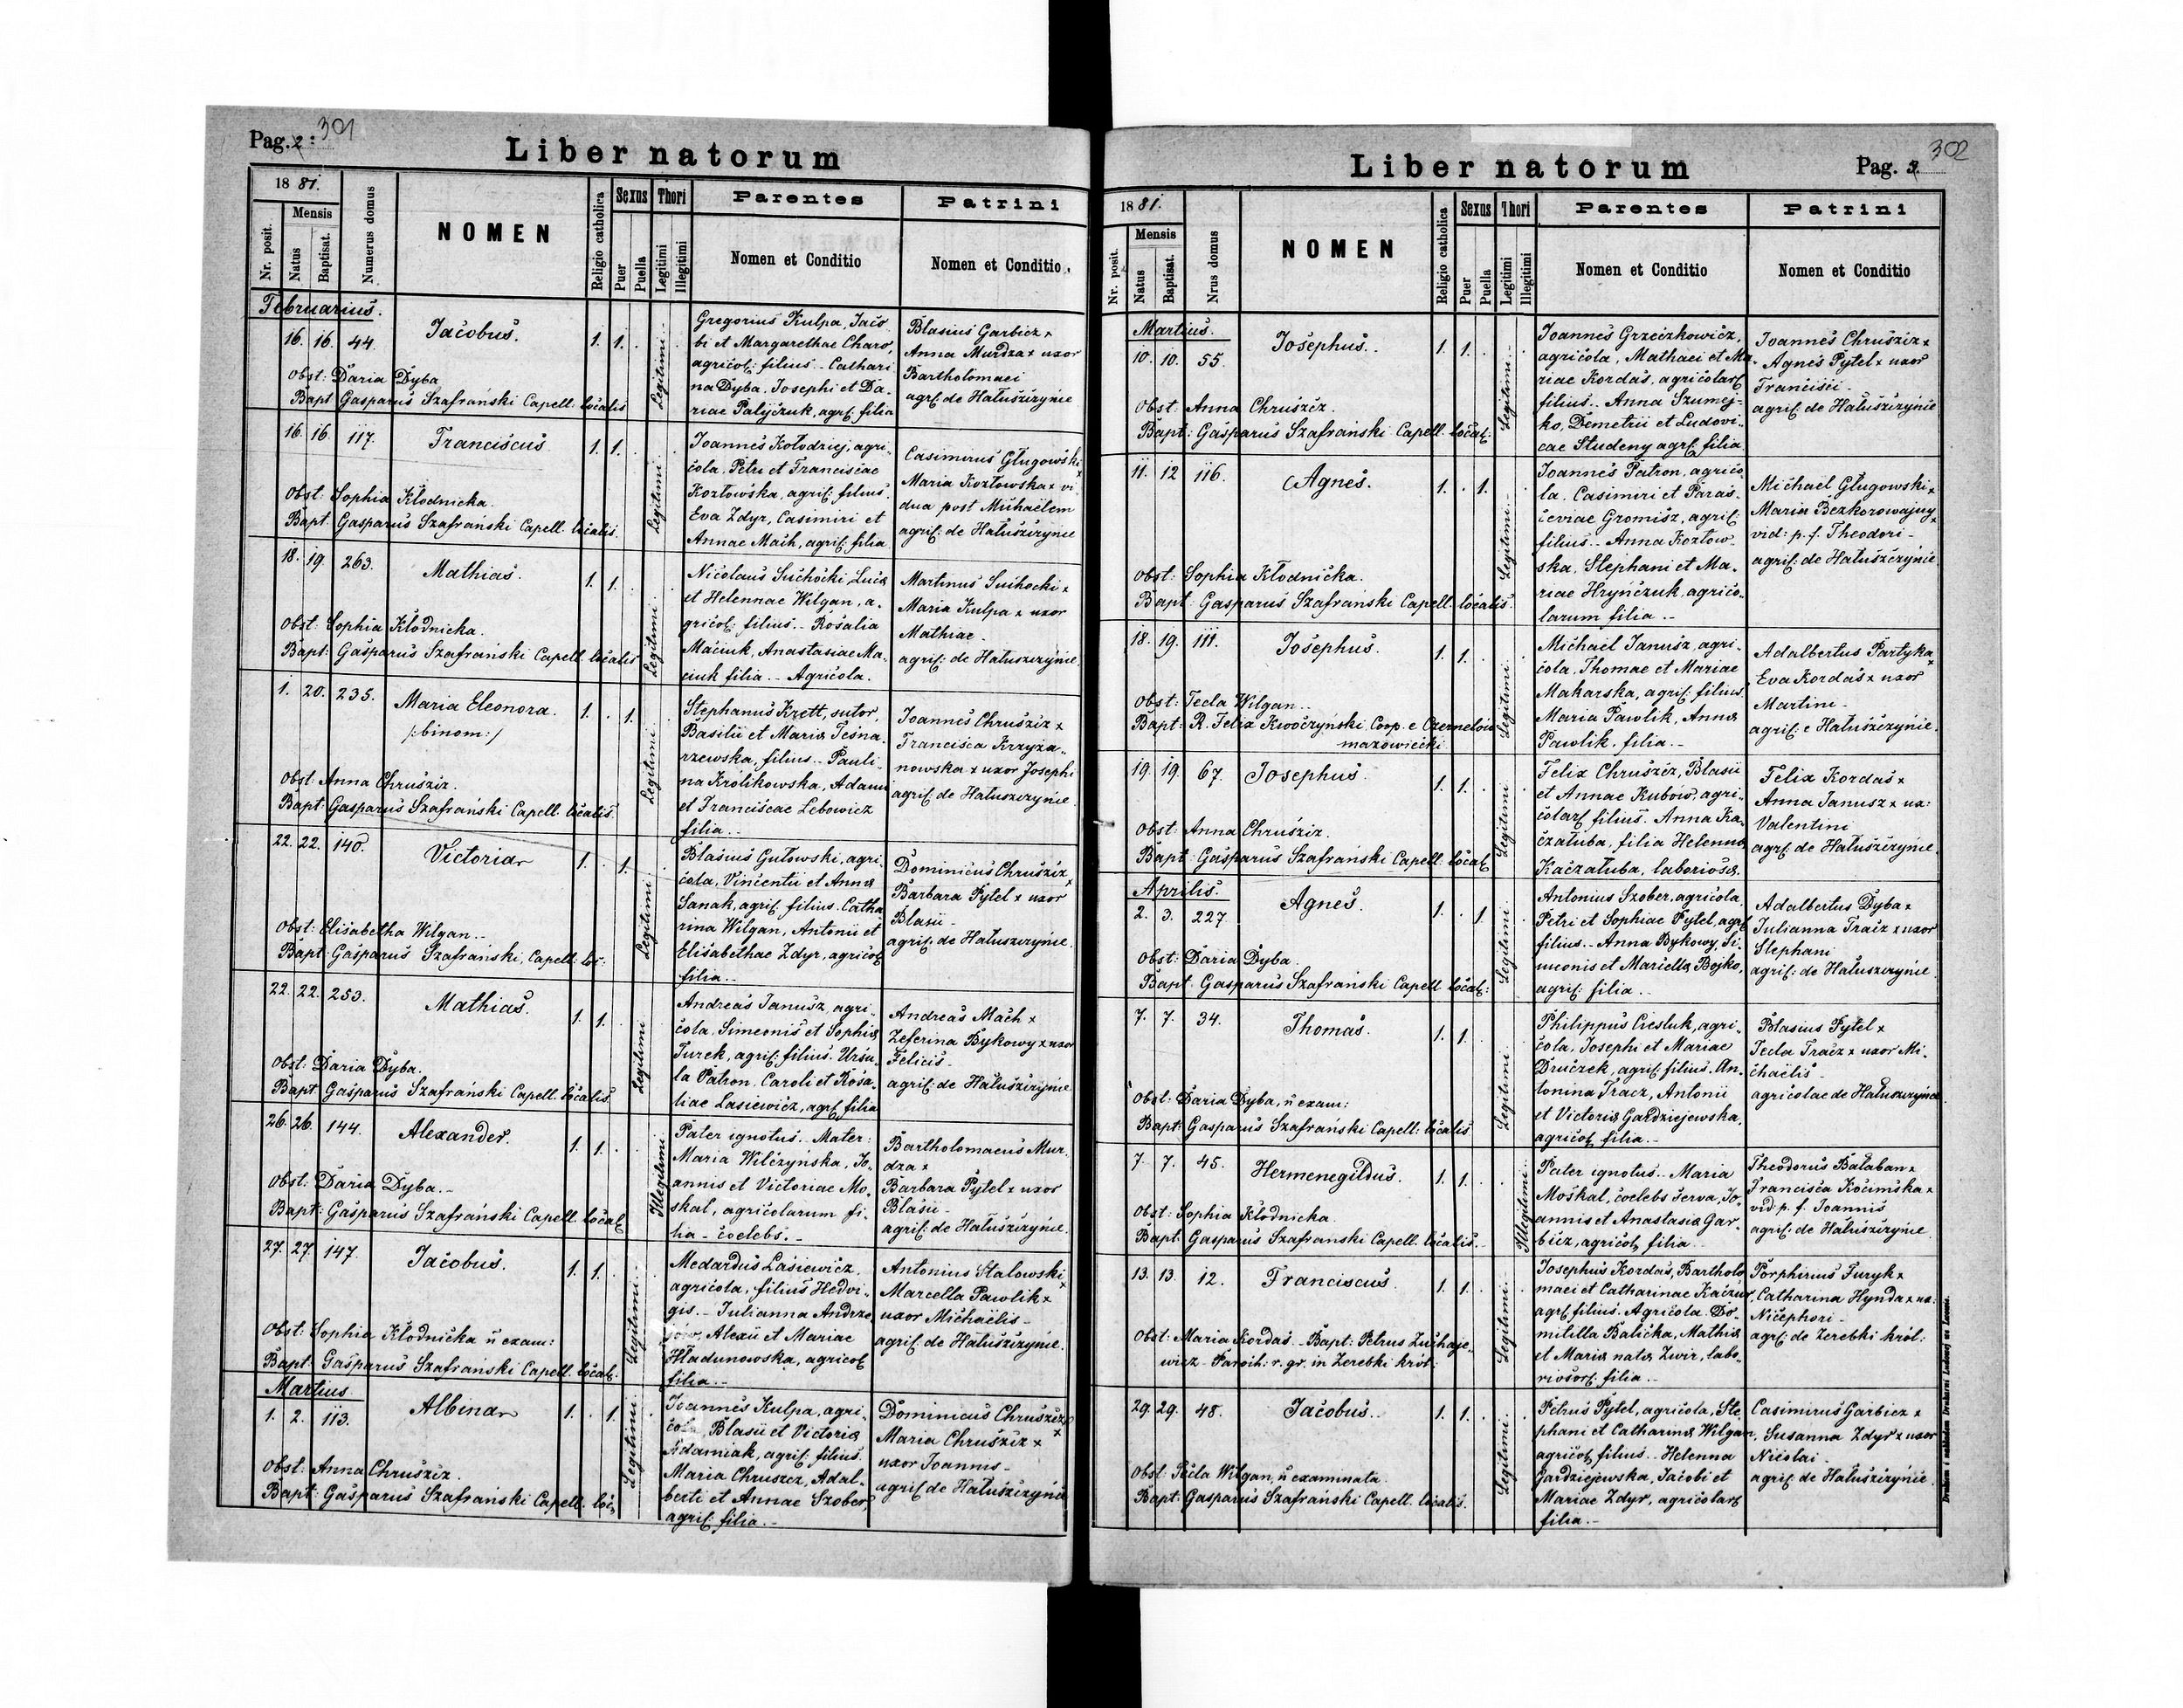 Pag. 2: 301
Liber natorum
18 81.
Nr. posit.
Mensis
Natus
Baptisat.
Numerus domus
NOMEN
Religio catholica
Sexus
Puer
Puella
Thori
Legitimi
Illegitimi
Parentes
Nomen et Conditio
Patrini
Nomen et Conditio
Februarius.
16. 16. 44. Jacobus. 1. 1. Legitimi
Obst: Daria Dyba
Bapt Gasparus Szafrański Capell. localis
Gregorius Kulpa, Jaco
bi et Margarethae Charo,
agricol: filius.- Cathari
na Dyba, Josephi et Da-
riae Palijczuk, agr: filia
Blasius Garbicz x
Anna Murdza x uxor
Bartholomaei
agr: de Hałuszczyńie
16. 16. 117. Franciscus 1. 1. Legitimi
Obst: Sophia Kłodnicka.
Bapt: Gasparus Szafrański Capell. localis.
Joannes Kołodziej, agri-
cola, Petri et Franciscae
Kozłowska, agric: filius.
Eva Zdyr, Casimiri et
Annae Mach, agric: filia
Casimirus Gługowski x
Maria Kozłowska x vi-
dua post Michaëlem
agric: de Hałuszczyńie
18. 19. 263. Mathias. 1. 1. Legitimi
Obst: Sophia Kłodnicka.
Bapt: Gasparus Szafrański Capell. localis
Nicolaus Suchocki Lucae
et Helennae Wilgan, a-
gricol: filius.- Rosalia
Maciuk, Anastasiae Ma-
ciuk filia.- Agricola.
Martinus Suchocki x
Maria Kulpa x uxor
Mathiae-
agric: de Hałuszczyńie.
1. 20. 235. Maria Eleonora. 1. 1. Legitimi
/:binom:/
Obst: Anna Chruścicz.
Bapt: Gasparus Szafrański Capell. localis.
Stephanus Krett, sutor,
Basilii et Mariae Tesna-
rzewska, filius.- Pauli-
na Królikowska, Adami
et Franciscae Lebowicz
filia.-
Joannes Chruścicz x
Francisca Krzyża-
nowska x uxor Josephi
agric: de Hałuszczyńie.
22. 22. 140. Victoria 1. 1. Legitimi
Obst: Elisabetha Wilgan.-
Bapt: Gasparus Szafrański, Capell: loc:
Blasius Gutowski, agri-
cola, Vincentii et Annae
Sanak, agric: filius. Catha
rina Wilgan, Antonii et
Elisabethae Zdyr, agricol:
filia.-
Dominicus Chruścicz x
Barbara Pytel x uxor
Blasii-
agric: de Hałuszczyńie.
22. 22. 253. Mathias. 1. 1. Legitimi
Obst: Daria Dyba.
Bapt Gasparus Szafrański Capell. localis.
Andreas Janusz, agri-
cola, Simeonis et Sophiae
Turek, agric: filius. Ursu-
la Patron, Caroli et Rosa-
liae Lasiewicz, agr: filia
Andreas Mach x
Zeferina Bykowy x uxor
Felicis-
agric: de Hałuszczyńie
26. 26. 144. Alexander. 1. 1. Illegitimi
Obst: Daria Dyba.-
Bapt: Gasparus Szafrański Capell. local:
Pater ignotus. Mater:
Maria Wilczyńska, Jo-
annis et Victoriae Mo-
skal, agricolarum fi-
lia - coelebs.-
Bartholomaeus Mur-
dza x
Barbara Pytel x uxor
Blasii-
agric: de Hałuszczyńie.
27. 27. 147. Jacobus. 1. 1. Legitimi
Obst: Sophia Kłodnicka n exam:
Bapt: Gasparus Szafrański Capell. local:
Medardus Lasiewicz,
agricola, filius Hedvi-
gis.- Julianna Andrze
jów, Alexii et Mariae
Hładunowska, agricol:
filia.-
Antonius Stalowski x
Marcella Pawlik x
uxor Michaëlis-
agric: de Hałuszczyńie.
Martius
1. 2. 113. Albina 1. 1. Legitimi
Obst: Anna Chruścicz.
Bapt: Gasparus Szafrański Capell. loc:
Joannes Kulpa, agri-
cola, Blasii et Victoriae
Adamiak, agric: filius.
Maria Chruszcz, Adal-
berti et Annae Szober,
agric: filia.-
Dominicus Chruścicz x
Maria Chruścicz x
uxor Joannis-
agric: de Hałuszczyńie
Liber natorum
Pag. 3. 302
18 81.
Nr. posit.
Mensis
Natus
Baptisat.
Nrus domus
NOMEN
Religio catholica
Sexus
Puer
Puella
Thori
Legitimi
Illegitimi
Parentes
Nomen et Conditio
Patrini
Nomen et Conditio
Martius.
10. 10. 55. Josephus. 1. 1. Legitimi
Obst: Anna Chruścz.
Bapt: Gasparus Szafrański Capell. local:
Joannes Grzeczkowicz,
agricola, Mathaei et Ma-
riae Kordas, agricolar:
filius.- Anna Szumej-
ko, Demetrii et Ludovi-
cae Studeny agr: filia.
Joannes Chruścicz x
Agnes Pytel x uxor
Francisci-
agric: de Hałuszczyńie
11. 12 116. Agnes. 1. 1. Legitimi
Obst: Sophia Kłodnicka.
Bapt: Gasparus Szafrański Capell. localis.
Joannes Patron, agrico-
la, Casimiri et Paras-
ceviae Gromisz, agric:
filius.- Anna Kozłow-
ska, Stephani et Ma-
riae Hryńczuk, agrico-
larum filia.-
Michael Gługowski x
Maria Bezkorowajny x
vid: p. f. Theodori-
agric: de Hałuszczyńie.
18. 19. 111. Josephus. 1. 1. Legitimi
Obst: Tecla Wilgan.-
Bapt: R. Felix Kwoczyński Coop. e Czernelow
mazowiecki
Michael Janusz, agri-
cola, Thomae et Mariae
Makarska, agric: filius.
Maria Pawlik, Annae
Pawlik, filia.-
Adalbertus Partyka x
Eva Kordas x uxor
Martini-
agric: e Hałuszczyńie.
19. 19. 67. Josephus. 1. 1. Legitimi
Obst: Anna Chruścicz.
Bapt: Gasparus Szafrański Capell. local:
Felix Chruścicz, Blasii
et Annae Kubów, agri-
colar: filius. Anna Ka-
czałuba, filia Helennae
Kaczałuba, laboriosae.
Felix Kordas x
Anna Janusz x ux:
Valentini
agric: de Hałuszczyńie.
Aprilis.
2. 3. 227. Agnes. 1. 1. Legitimi
Obst: Daria Dyba.
Bapt: Gasparus Szafrański Capell. local:
Antonius Szober, agricola,
Petri et Sophiae Pytel, agr:
filius.- Anna Bykowy, Si-
meonis et Mariellae Bojko,
agric: filia.-
Adalbertus Dyba x
Julianna Tracz x uxor
Stephani
agric: de Hałuszczyńie.
7. 7. 34. Thomas. 1. 1. Legitimi
Obst: Daria Dyba, n exam:
Bapt: Gasparus Szafrański Capell: localis
Philippus Ciesluk, agri-
cola, Josephi et Mariae
Druczek, agric: filius. An-
tonina Tracz, Antonii
et Victoriae Gardziejewska,
agricol: filia.-
Blasius Pytel x
Tecla Tracz x uxor Mi-
chaëlis-
agricolae de Hałuszczyńie.
7. 7. 45. Hermenegildus. 1. 1. Illegitimi
Obst: Sophia Kłodnicka.
Bapt: Gasparus Szafrański Capell. localis.-
Pater ignotus.- Maria
Moskal, coelebs serva, Jo-
annis et Anastasiae Gar-
bicz, agricol: filia.-
Theodorus Bałaban x
Francisca Kocimska x
vid: p. f. Joannis
agric: de Hałuszczyńie
13. 13. 12. Franciscus. 1. 1. Legitimi
Obst: Maria Kordas.- Bapt: Petrus Zuchaje-
wicz - Paroch: r. gr. in Zerebki król:
Josephus Kordas, Bartholo
maei et Catharinae Kaczur,
agr: filius. Agricola. Do-
mitilla Balicka, Mathiae
et Mariae nata Zwir, labo-
riosor: filia.-
Porphirius Furyk x
Catharina Hynda x ux:
Nicephori-
agr: de Zerebki król:
29. 29. 48. Jacobus. 1. 1. Legitimi
Obst: Tecla Wilgan, n examinata.
Bapt: Gasparus Szafrański Capell. localis.
Petrus Pytel, agricola, Ste
phani et Catharinae Wilgan,
agricol: filius.- Helenna
Gardziejewska, Jacobi et
Mariae Zdyr, agricolar:
filia.-
Casimirus Garbicz x
Susanna Zdyr x uxor
Nicolai-
agric: de Hałuszczyńie.